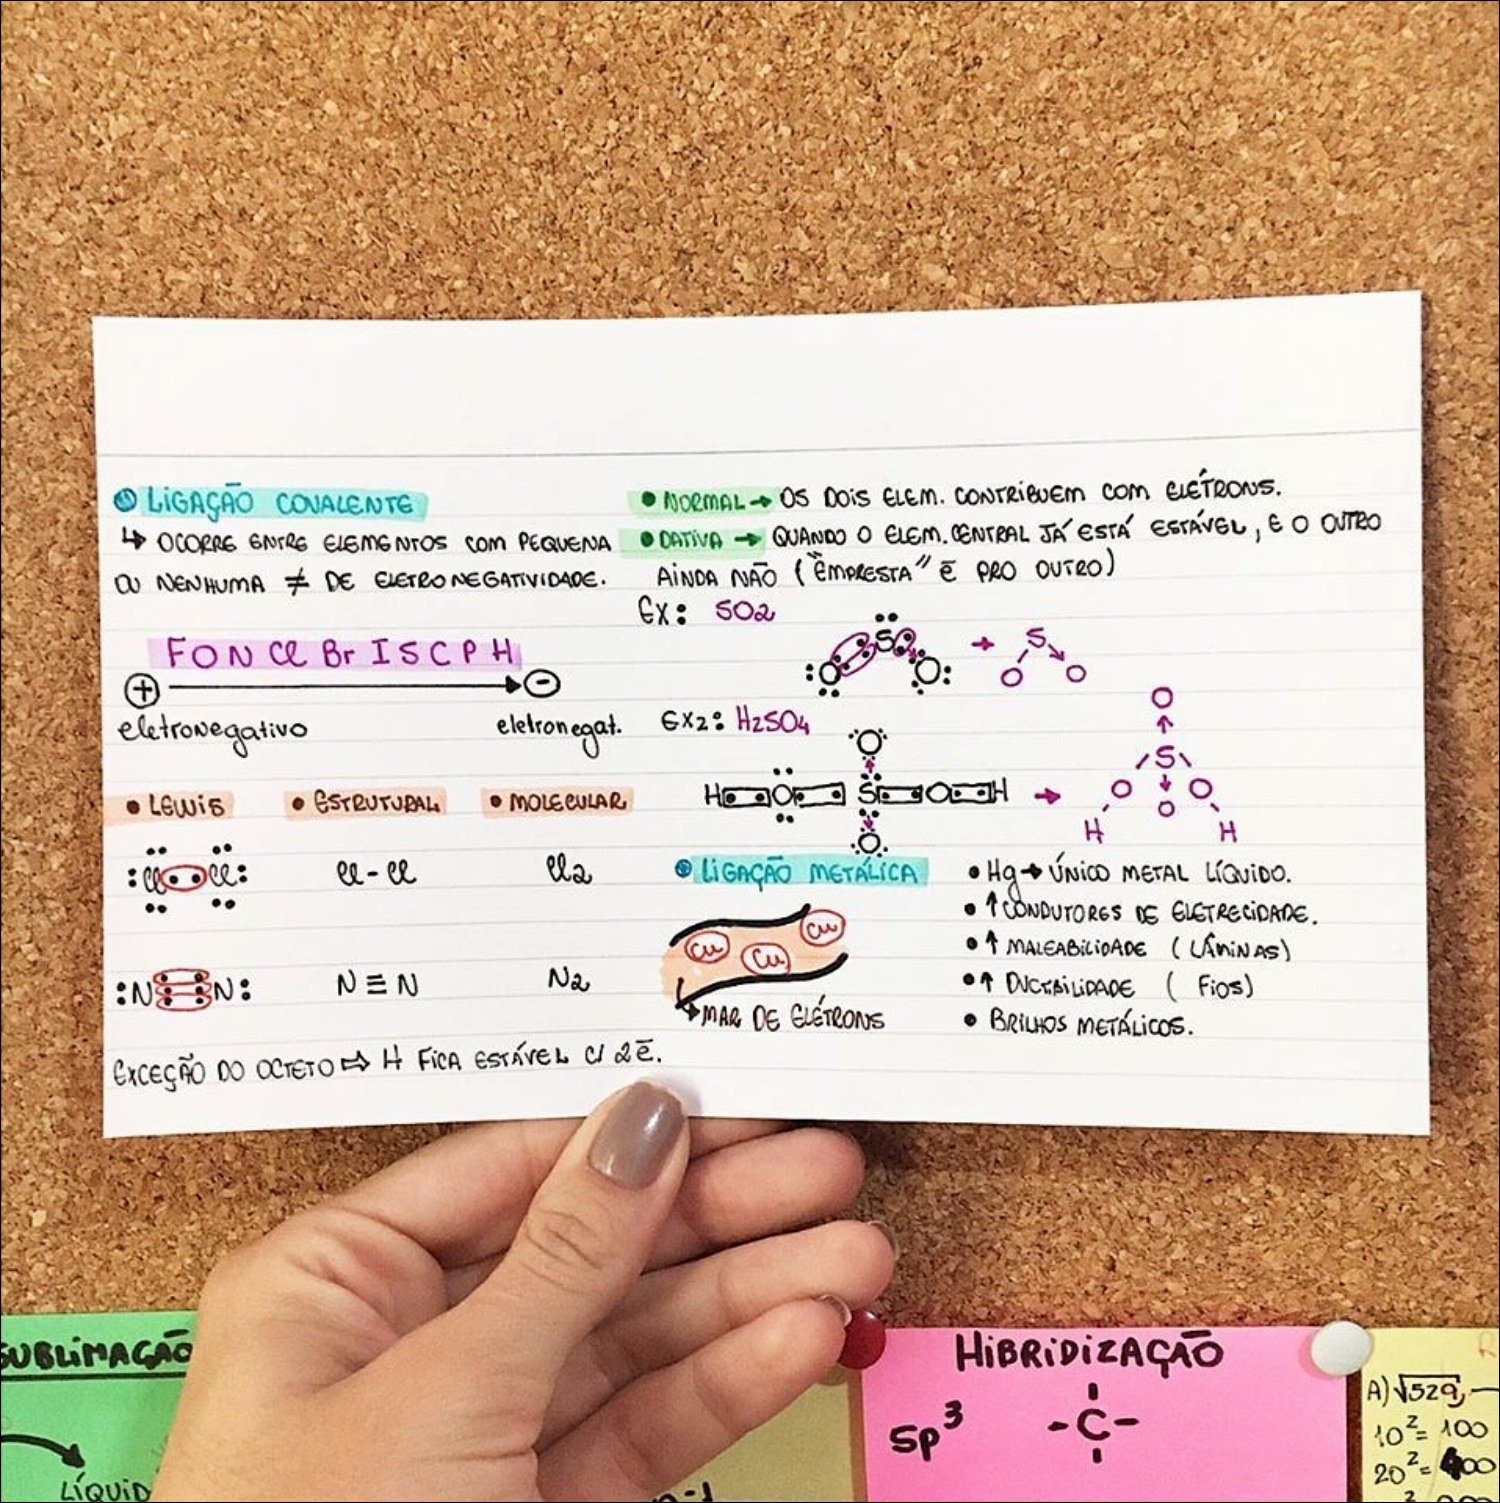 LIGAÇÃO COVALENTE
↳ OCORRE ENTRE ELEMENTOS COM PEQUENA
OU NENHUMA ≠ DE ELETRONEGATIVIDADE.
F O N Cl Br I S C P H
+ → -
eletronegativo eletronegat.
• LEWIS • ESTRUTURAL • MOLECULAR
:Cl••Cl: Cl-Cl Cl2
:N N: N≡N N2
EXCEÇÃO DO OCTETO ⇨ H FICA ESTÁVEL C/ 2ē.
• NORMAL → OS DOIS ELEM. CONTRIBUEM COM ELÉTRONS.
• DATIVA → QUANDO O ELEM. CENTRAL JÁ ESTÁ ESTÁVEL, E O OUTRO
AINDA NÃO ("EMPRESTA" ē PRO OUTRO)
EX: SO2
S → S
O O O O
EX2: H2SO4
O O
H O S O H → S
O O O O
H H
LIGAÇÃO METÁLICA
Cu Cu Cu
↳ MAR DE ELÉTRONS
• Hg → ÚNICO METAL LÍQUIDO.
• ↑ CONDUTORES DE ELETRECIDADE.
• ↑ MALEABILIDADE (LÂMINAS)
• ↑ DUCTBILIDADE (FIOS)
• BRILHOS METÁLICOS.
SUBLIMAÇÃO
LÍQUID
n-1
HIBRIDIZAÇÃO
sp³ -C-
A) √529
10² = 100
20² = 400